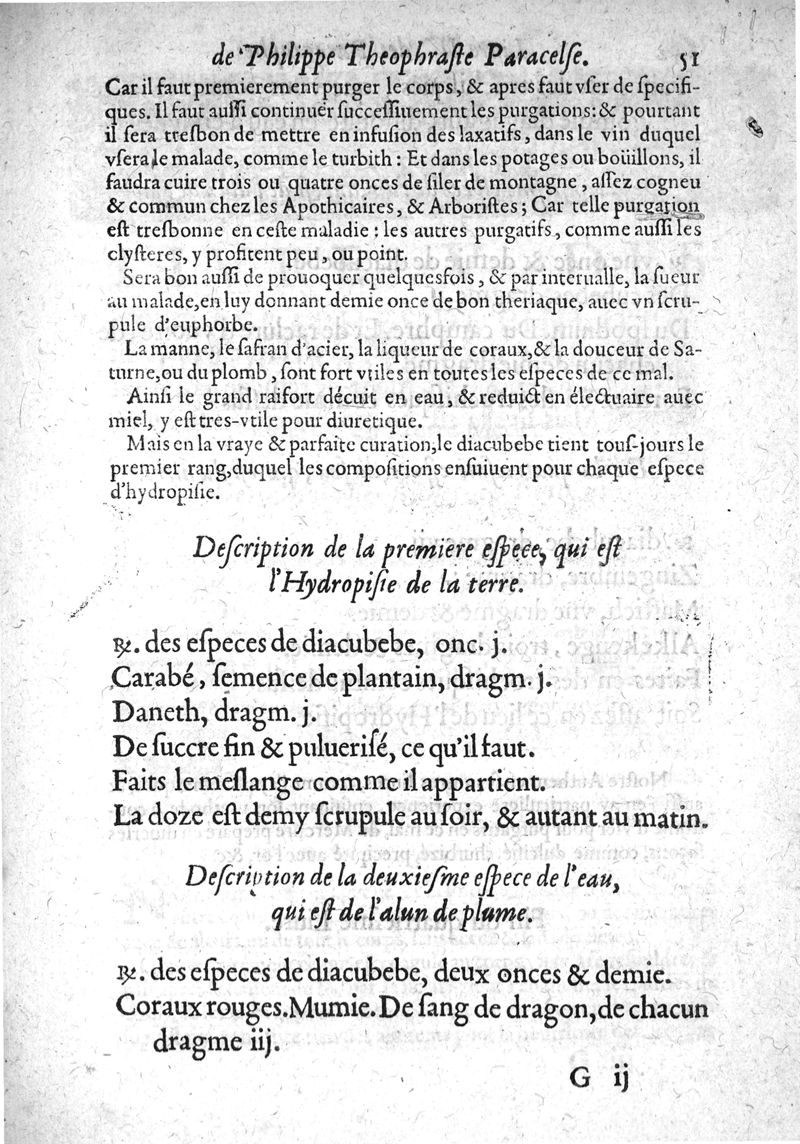 de Philippe Theophraſte Paracelſe. 51
Car il faut premierement purger le corps, & apres faut vſer de ſpecifi-
ques. Il faut auſſi continuër ſucceſſiuement les purgations: & pourtant
il ſera tresbon de mettre en infuſion des laxatifs, dans le vin duquel
vſera le malade, comme le turbith : Et dans les potages ou boüillons, il
faudra cuire trois ou quatre onces de ſiler de montagne, aſſez cogneu
& commun chez les Apothicaires, & Arboriſtes; Car telle purgation
eſt tresbonne en ceſte maladie : les autres purgatifs, comme auſſi les
clyſteres, y profitent peu, ou point.
Sera bon auſſi de prouoquer quelquesfois, & par interualle, la ſueur
au malade, en luy donnant demie once de bon theriaque, auec vn ſcru-
pule d'euphorbe.
La manne, le ſafran d'acier, la liqueur de coraux, & la douceur de Sa-
turne, ou du plomb, ſont fort vtiles en toutes les eſpeces de ce mal.
Ainſi le grand raifort décuit en eau, & reduict en électuaire auec
miel, y eſt tres-vtile pour diuretique.
Mais en la vraye & parfaite curation, le diacubebe tient touſ-jours le
premier rang, duquel les compoſitions enſuiuent pour chaque eſpece
d'hydropiſie.
Deſcription de la premiere eſpece, qui eſt
l'Hydropiſie de la terre.
℞. des eſpeces de diacubebe, onc. j.
Carabé, ſemence de plantain, dragm. j.
Daneth, dragm. j.
De ſuccre fin & puluerisé, ce qu'il faut.
Faits le meſlange comme il appartient.
La doze eſt demy ſcrupule au ſoir, & autant au matin.
Deſcription de la deuxieſme eſpece de l'eau,
qui eſt de l'alun de plume.
℞. des eſpeces de diacubebe, deux onces & demie.
Coraux rouges. Mumie. De ſang de dragon, de chacun
dragme iij.
G ij